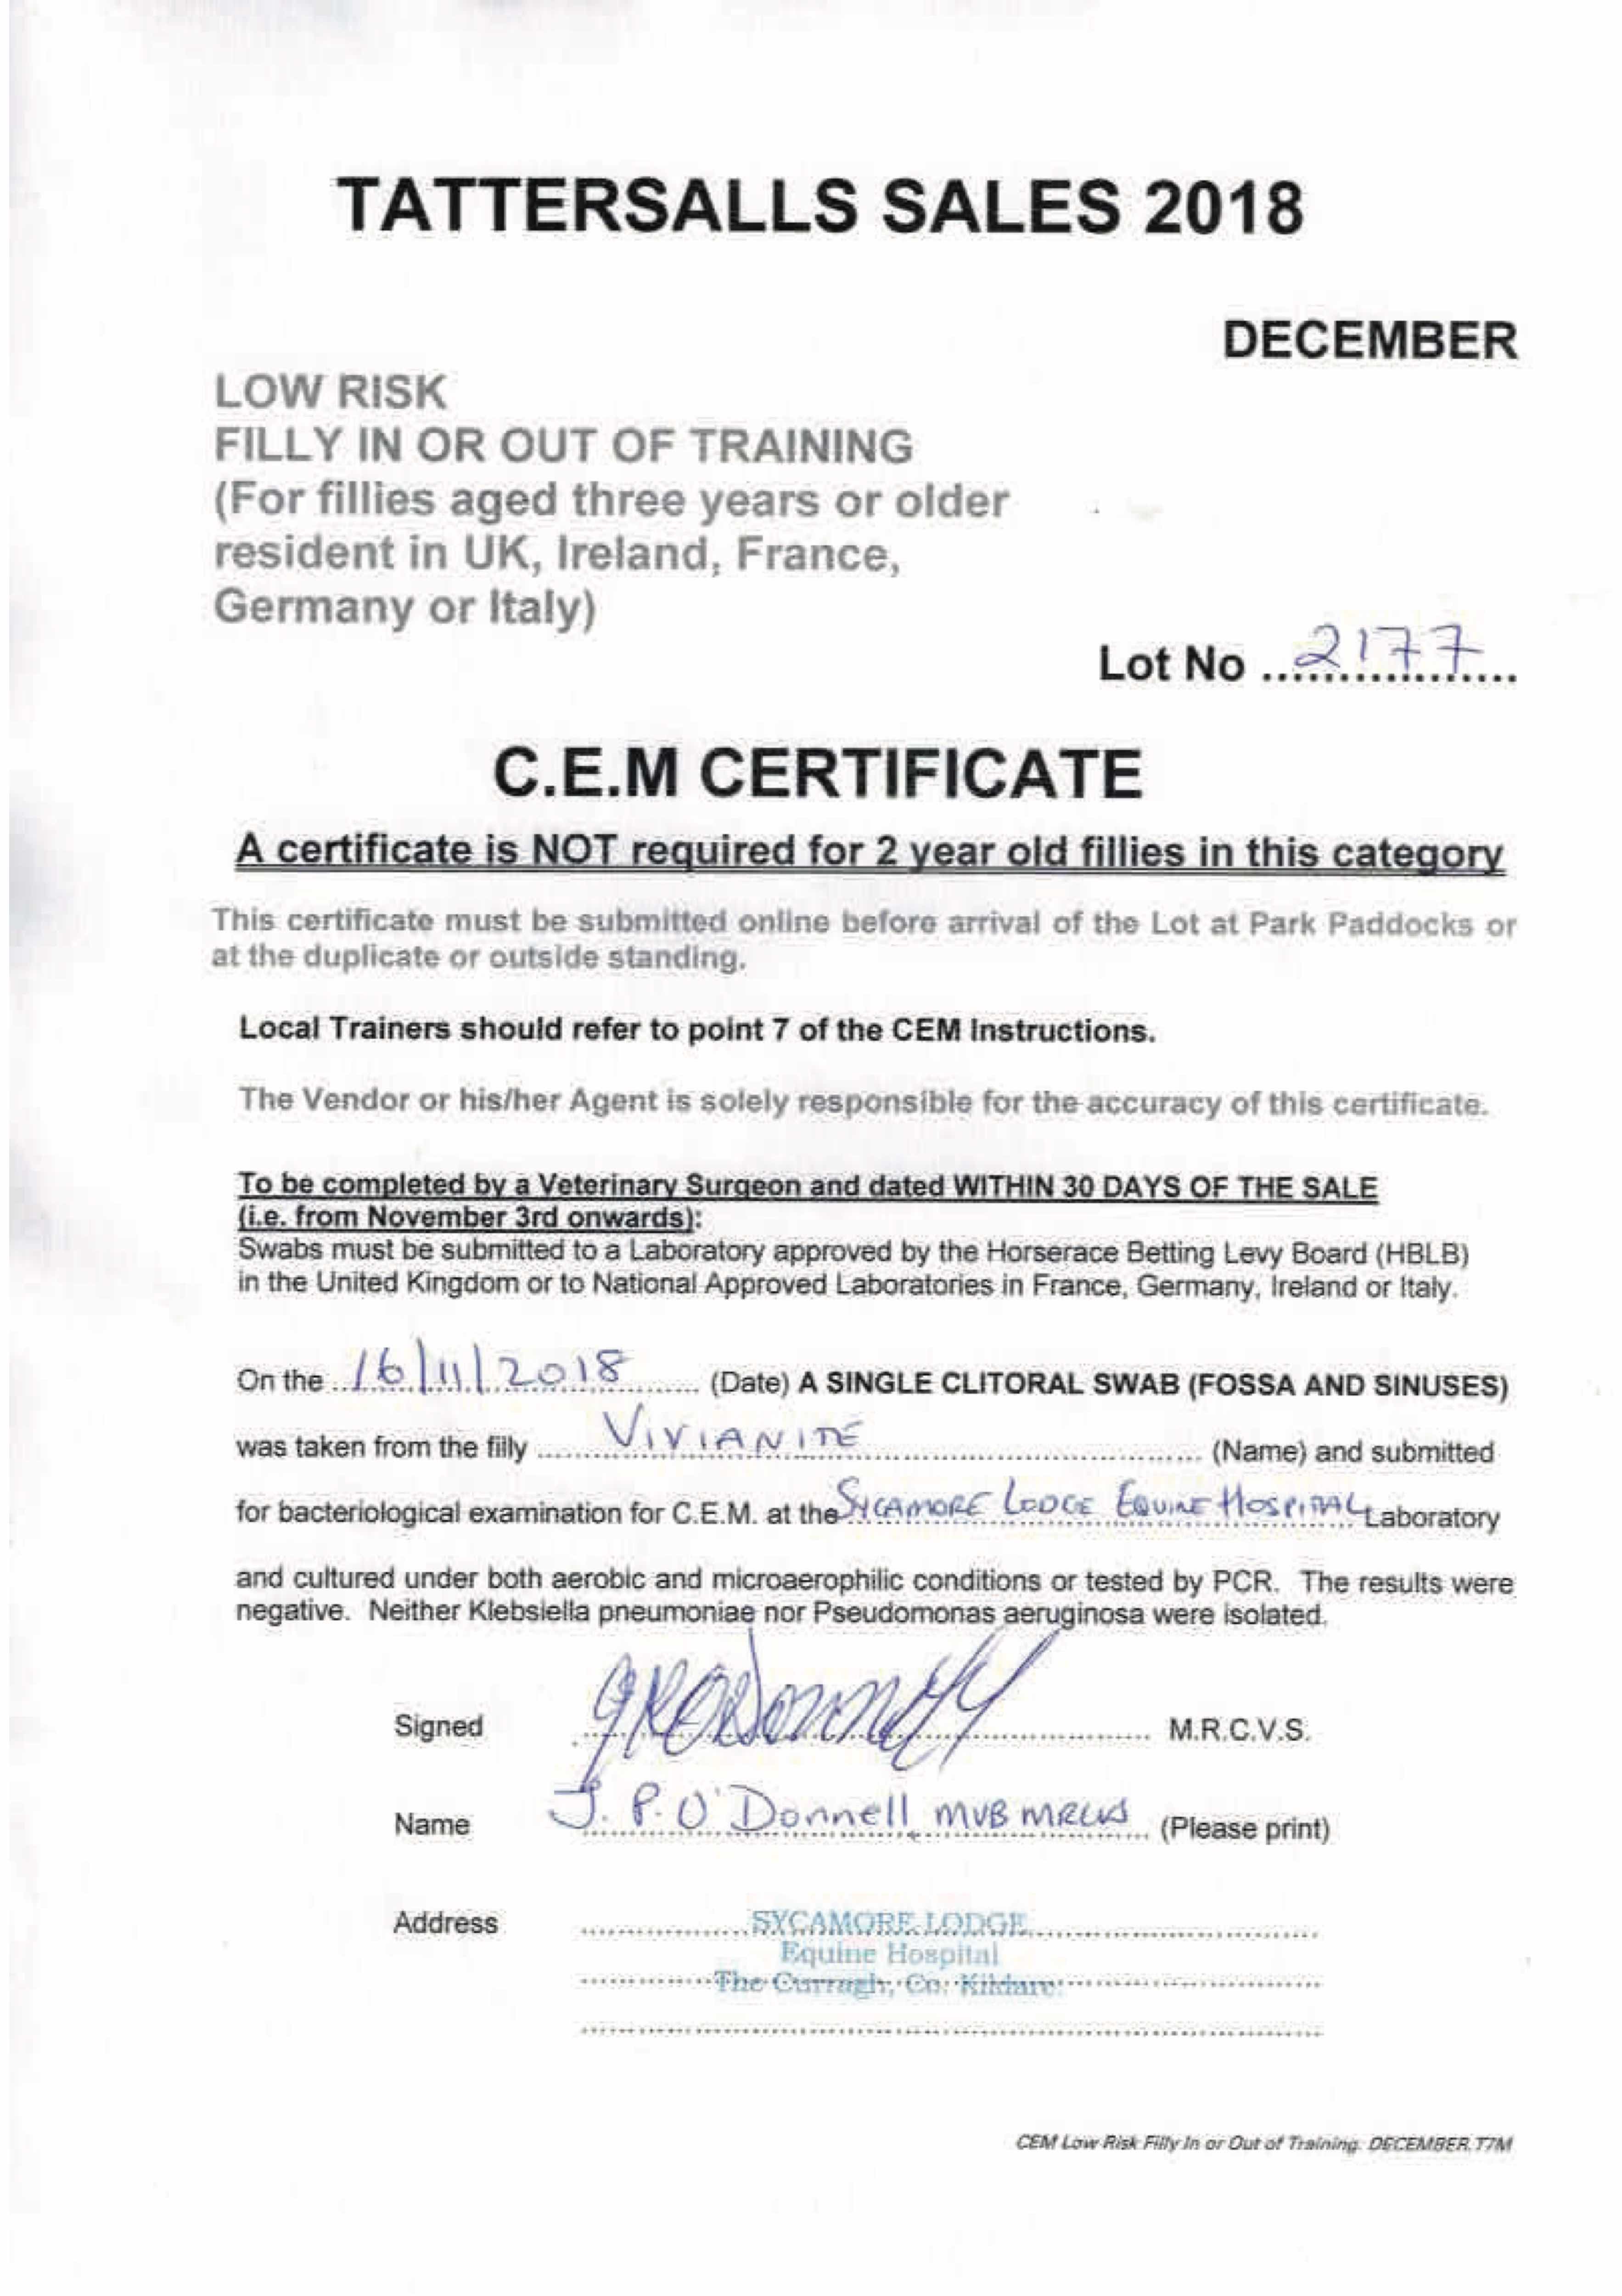 TATTERSALLS SALES 2018
DECEMBER
LOW RISK
FILLY IN OR OUT OF TRAINING
(For fillies aged three years or older
resident in UK, Ireland, France,
Germany or Italy)
Lot No 2177
C.E.M CERTIFICATE
A certificate is NOT required for 2 year old fillies in this category
This certificate must be submitted online before arrival of the Lot at Park Paddocks or
at the duplicate or outside standing.
Local Trainers should refer to point 7 of the CEM Instructions.
The Vendor or his/her Agent is solely responsible for the accuracy of this certificate.
To be completed by a Veterinary Surgeon and dated WITHIN 30 DAYS OF THE SALE
(i.e. from November 3rd onwards):
Swabs must be submitted to a Laboratory approved by the Horserace Betting Levy Board (HBLB)
in the United Kingdom or to National Approved Laboratories in France, Germany, Ireland or Italy.
On the 16/11/2018 (Date) A SINGLE CLITORAL SWAB (FOSSA AND SINUSES)
was taken from the filly VIVIANITE (Name) and submitted
for bacteriological examination for C.E.M. at the SYCAMORE LODGE EQUINE HOSPITAL Laboratory
and cultured under both aerobic and microaerophilic conditions or tested by PCR. The results were
negative. Neither Klebsiella pneumoniae nor Pseudomonas aeruginosa were isolated.
Signed M.R.C.V.S.
Name J. P. O'Donnell MVB MRCVS (Please print)
Address SYCAMORE LODGE
Equine Hospital
The Curragh, Co. Kildare.
CEM Low Risk Filly In or Out of Training. DECEMBER.T7M